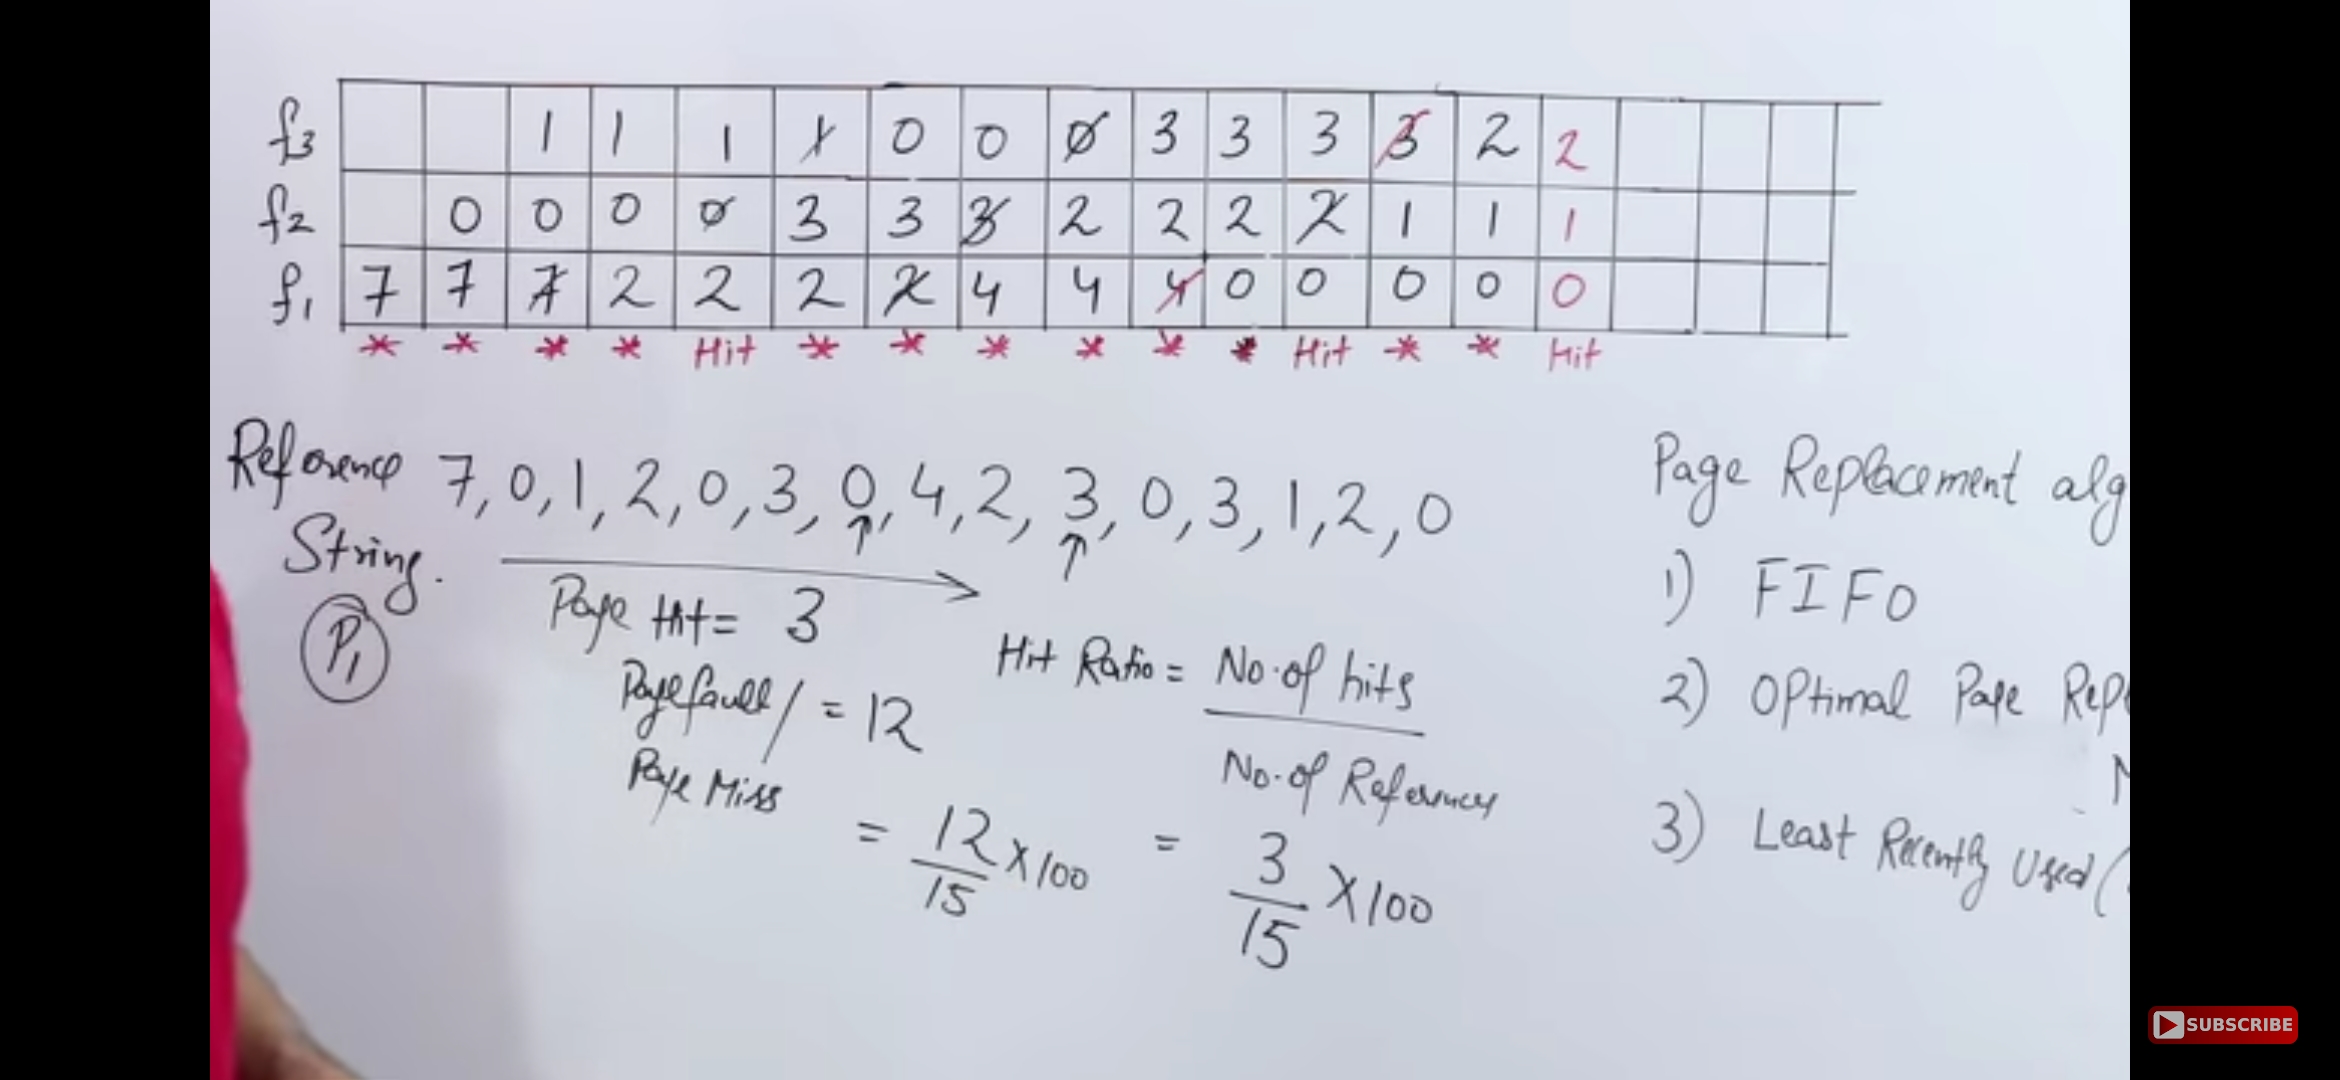 f3 1 1 1 1 0 0 0 3 3 3 3 2 2
f2 0 0 0 0 3 3 3 2 2 2 2 1 1 1
f1 7 7 7 2 2 2 2 4 4 4 0 0 0 0 0
* * * * Hit * * * * * * Hit * * Hit
Reference 7, 0, 1, 2, 0, 3, 0, 4, 2, 3, 0, 3, 1, 2, 0
String.
P1
Page Hit = 3
Page fault / = 12
Page Miss
= 12/15 X 100
Hit Ratio = No. of hits
No. of Reference
= 3/15 X 100
Page Replacement alg
1) FIFO
2) Optimal Page Rep
3) Least Recently Used (
SUBSCRIBE